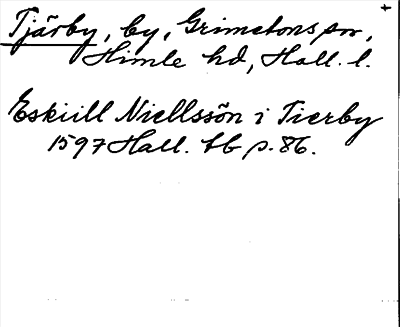 Tjärby, by, Grimetons sn,
Himle hd, Hall. l.
Eskiill Niellssön i Tierby
1597 Hall. tb p. 86.